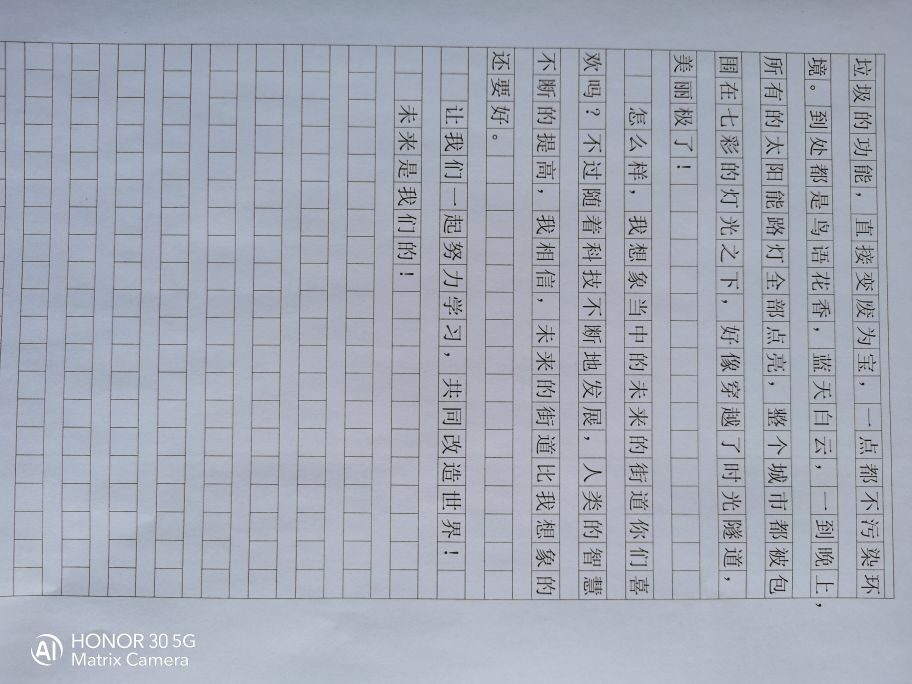 垃圾的功能，直接变废为宝，一点都不污染环
境。到处都是鸟语花香，蓝天白云，一到晚上，
所有的太阳能路灯全部点亮，整个城市都被包
围在七彩的灯光之下，好像穿越了时光隧道，
美丽极了！
怎么样，我想象当中的未来的街道你们喜
欢吗？不过随着科技不断地发展，人类的智慧
不断的提高，我相信，未来的街道比我想象的
还要好。
让我们一起努力学习，共同改造世界！
未来是我们的！
AI HONOR 30 5G
Matrix Camera